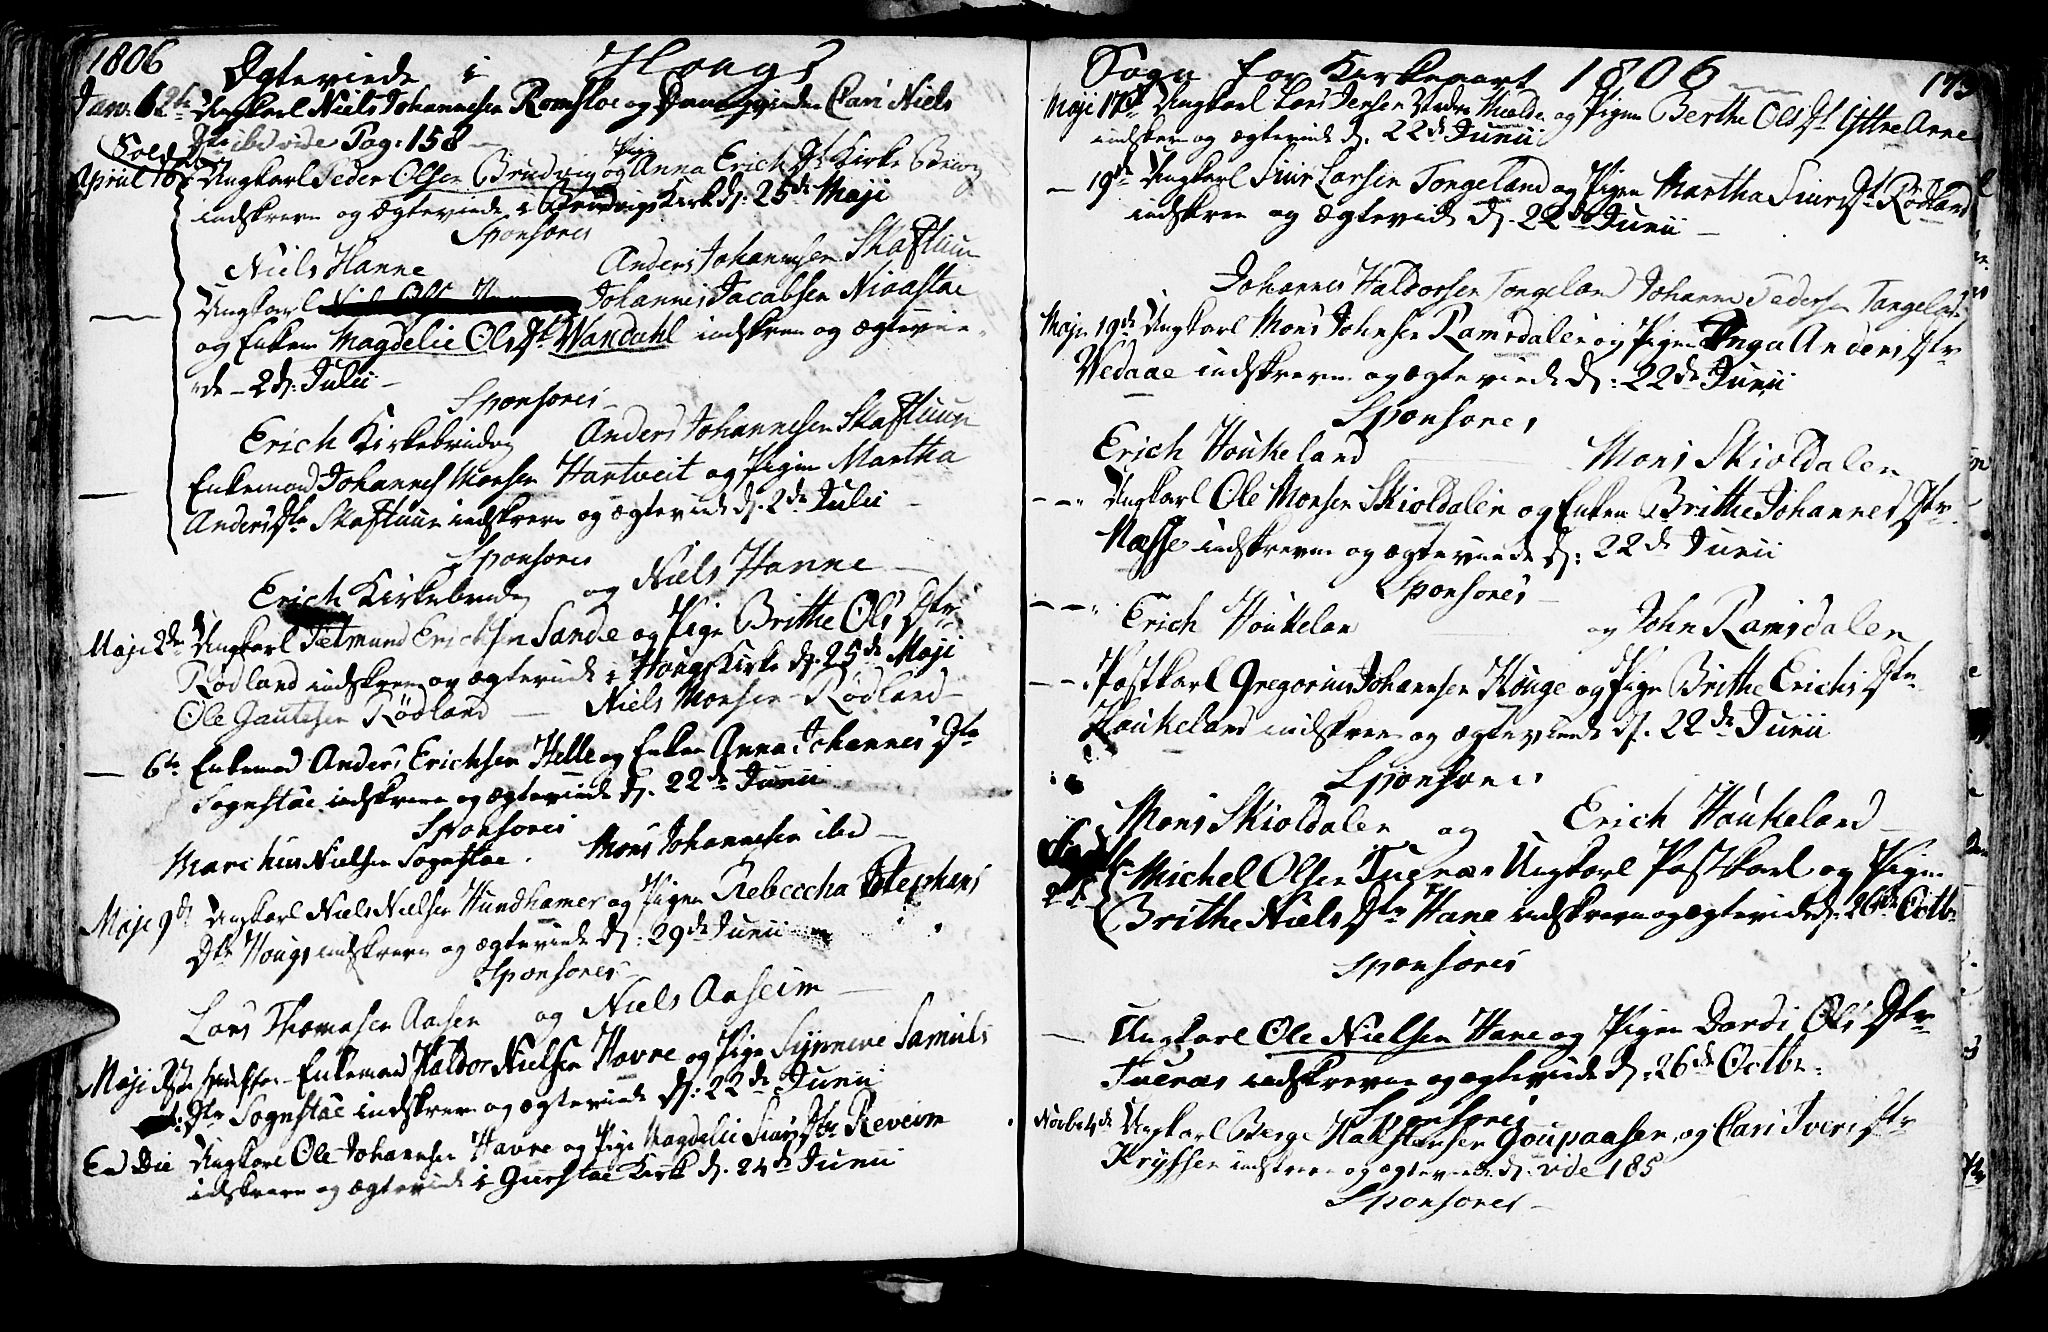 1806 Ægteviede i Hougs
Jan: 12te Ungkarl Niels Johannesen Romsloe og Cari Niels
Dtr ibd vide Pag: 158
Sold:
April 16 Ungkarl Peder Olsen Brudvig og Pigen Anna Erichs Dtr Kirke Bruvig
indskrevne og Ægteviede i Brudvigs Kirke d: 25de Maji
Sponsores
Niels Hanne Anders Johannesen Skaftuun
— Ungkarl Johannes Jacobsen
og Enken Magdelie Ols Dtr Wandahl indskrevne og ægtevie-
de – 2 d: Julii –
Sponsores
Erich Kirkebruvig Anders Johannesen Skaftuun
— Enkemand Johannes Monsen Hartveit og Pigen Martha
Anders Dtr Skaftuun indskrevne og ægteviede d. 2de Julii –
Sponsores
Erich Kirkebruvig og Niels Hanne –
Maji 2den Ungkarl Tetmund Erichsen Sande og Pige Brithe Ols Dtr
Rødland indskrevne og ægteviede i Hougs Kirke d. 25de Maji
Ole Gautesen Rødland — Niels Monsen Rødland
— 6te Enkemand Anders Erichsen Helle og Enken Anna Johannes Dtr
Sognstøe indskrevne og ægteviede d. 22de Junii
Sponsores
Marchus Nielsen Sognstøe. Mons Johannesen ibd –
Maji 9de Ungkarl Niels Nielsen Hundhamer og Pigen Rebeccha Stephans
Dtr Hougs indskrevne og ægteviede d: 29de Junii
Sponsores –
Lars Thomasen Aasen og Niels Aaseim –
Maji Enkemand Haldor Nielsen Havre og Pige Synneve Samuels
Dtr Sognstøe indskrevne og ægteviede d: 22de Junii
Eod Die Ungkarl Ole Johannesen Havre og Pige Magdelie Siurs Dtr Reveim
indskrevne og ægteviede i Kirke d. 24de Junii
Sogn for Kirkeaart 1806 173
Maji 17de Ungkarl Lars Jensen Mælde og Pigen Berthe Ols Dtr Yttre Arne
indskrevne og ægteviede d. 22de Junii
— 19de Ungkarl Siur Larsen Tongeland og Pigen Martha Siurs Dtr Rødland
indskrevne og Ægteviede d. 22de Junii –
Johannes Haldorsen Tongeland Johannes Pedersen Tangeland
Maji 19de Ungkarl Mons Johnsen Ramsdalen og Pigen Inga Anders Dtr
Vedaae indskrevne og ægteviede d: 22de Junii
Sponsores
Erich Houkeland Mons Skioldalen
— — " Ungkarl Ole Monsen Skioldalen og Enken Brithe Johannes Dtr
Næsse indskrevne og ægteviede d: 22de Junii
Sponsores –
— — " Erich Houkeland og John Ramsdalen
— — . Postkarl Gregorius Johannesen Houge og Pige Brithe Erichs Dtr
Houkeland indskrevne og ægteviede d. 22de Junii
Sponsores
Mons Skioldalen og Erich Houkeland –
Michel Olsen Tuenæs Ungkarl Postkarl og Pigen
Brithe Niels Dtr Hane indskrevne og ægteviede d. 26de Octbr
Sponsores
— Ungkarl Ole Nielsen Hane og Pigen Dordi Ols Dtr
Tuenæs indskrevne og ægteviede d. 26de Octbr.
Sponsores
Novbr 4de Ungkarl Berge Hakstensen Goupaasen og Cari Ivers Dtr
Kryssen indskrevne og ægteviede d. vide 185
Sponsores –